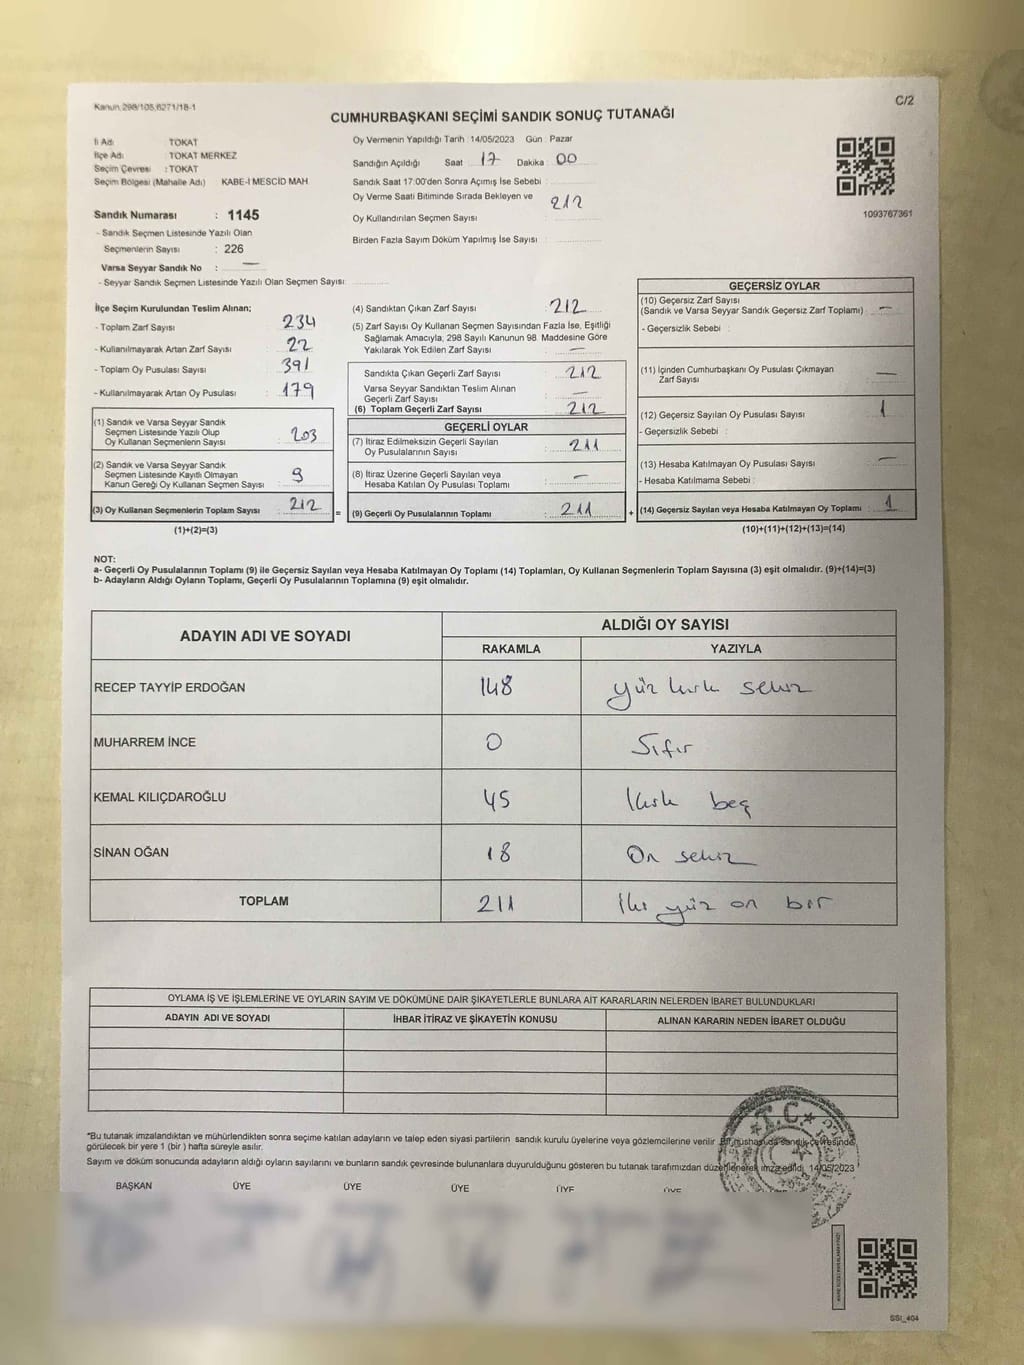 Kanun.298/105,6271/18-1
C/2
CUMHURBAŞKANI SEÇİMİ SANDIK SONUÇ TUTANAĞI
İl Adı : TOKAT
İlçe Adı : TOKAT MERKEZ
Seçim Çevresi : TOKAT
Seçim Bölgesi (Mahalle Adı) KABE-İ MESCİD MAH
Sandık Numarası : 1145
- Sandık Seçmen Listesinde Yazılı Olan
Seçmenlerin Sayısı : 226
Varsa Seyyar Sandık No : —
- Seyyar Sandık Seçmen Listesinde Yazılı Olan Seçmen Sayısı:
Oy Vermenin Yapıldığı Tarih :14/05/2023 Gün : Pazar
Sandığın Açıldığı Saat 17 Dakika : 00
Sandık Saat 17:00'den Sonra Açımış İse Sebebi :
Oy Verme Saati Bitiminde Sırada Bekleyen ve
Oy Kullandırılan Seçmen Sayısı : 212
Birden Fazla Sayım Döküm Yapılmış İse Sayısı :
1093767361
İlçe Seçim Kurulundan Teslim Alınan;
- Toplam Zarf Sayısı : 234
- Kullanılmayarak Artan Zarf Sayısı : 22
- Toplam Oy Pusulası Sayısı : 391
- Kullanılmayarak Artan Oy Pusulası : 179
(1) Sandık ve Varsa Seyyar Sandık
Seçmen Listesinde Yazılı Olup
Oy Kullanan Seçmenlerin Sayısı : 203
(2) Sandık ve Varsa Seyyar Sandık
Seçmen Listesinde Kayıtlı Olmayan
Kanun Gereği Oy Kullanan Seçmen Sayısı : 9
(3) Oy Kullanan Seçmenlerin Toplam Sayısı : 212
(1)+(2)=(3)
=
(4) Sandıktan Çıkan Zarf Sayısı : 212
(5) Zarf Sayısı Oy Kullanan Seçmen Sayısından Fazla İse, Eşitliği
Sağlamak Amacıyla, 298 Sayılı Kanunun 98. Maddesine Göre
Yakılarak Yok Edilen Zarf Sayısı : —
Sandıkta Çıkan Geçerli Zarf Sayısı : 212
Varsa Seyyar Sandıktan Teslim Alınan
Geçerli Zarf Sayısı : —
(6) Toplam Geçerli Zarf Sayısı : 212
GEÇERLİ OYLAR
(7) İtiraz Edilmeksizin Geçerli Sayılan
Oy Pusulalarının Sayısı : 211
(8) İtiraz Üzerine Geçerli Sayılan veya
Hesaba Katılan Oy Pusulası Toplamı : —
(9) Geçerli Oy Pusulalarının Toplamı : 211
+
GEÇERSİZ OYLAR
(10) Geçersiz Zarf Sayısı
(Sandık ve Varsa Seyyar Sandık Geçersiz Zarf Toplamı) : —
- Geçersizlik Sebebi :
(11) İçinden Cumhurbaşkanı Oy Pusulası Çıkmayan
Zarf Sayısı : —
(12) Geçersiz Sayılan Oy Pusulası Sayısı : 1
- Geçersizlik Sebebi :
(13) Hesaba Katılmayan Oy Pusulası Sayısı : —
- Hesaba Katılmama Sebebi :
(14) Geçersiz Sayılan veya Hesaba Katılmayan Oy Toplamı : 1
(10)+(11)+(12)+(13)=(14)
NOT:
a- Geçerli Oy Pusulalarının Toplamı (9) ile Geçersiz Sayılan veya Hesaba Katılmayan Oy Toplamı (14) Toplamları, Oy Kullanan Seçmenlerin Toplam Sayısına (3) eşit olmalıdır. (9)+(14)=(3)
b- Adayların Aldığı Oyların Toplamı, Geçerli Oy Pusulalarının Toplamına (9) eşit olmalıdır.
ADAYIN ADI VE SOYADI
ALDIĞI OY SAYISI
RAKAMLA YAZIYLA
RECEP TAYYİP ERDOĞAN 148 yüz kırk sekiz
MUHARREM İNCE 0 Sıfır
KEMAL KILIÇDAROĞLU 45 Kırk beş
SİNAN OĞAN 18 On sekiz
TOPLAM 211 İki yüz on bir
OYLAMA İŞ VE İŞLEMLERİNE VE OYLARIN SAYIM VE DÖKÜMÜNE DAİR ŞİKAYETLERLE BUNLARA AİT KARARLARIN NELERDEN İBARET BULUNDUKLARI
ADAYIN ADI VE SOYADI İHBAR İTİRAZ VE ŞİKAYETİN KONUSU ALINAN KARARIN NEDEN İBARET OLDUĞU
"Bu tutanak imzalandıktan ve mühürlendikten sonra seçime katılan adayların ve talep eden siyasi partilerin sandık kurulu üyelerine veya gözlemcilerine verilir. Bir nüshası da sandık çevresinde
görülecek bir yere 1 (bir) hafta süreyle asılır.
Sayım ve döküm sonucunda adayların aldığı oyların sayılarını ve bunların sandık çevresinde bulunanlara duyurulduğunu gösteren bu tutanak tarafımızdan düzenlenerek imza edildi. 14/05/2023
T.C.
BAŞKAN ÜYE ÜYE ÜYE ÜYE ÜYE
SSI_404